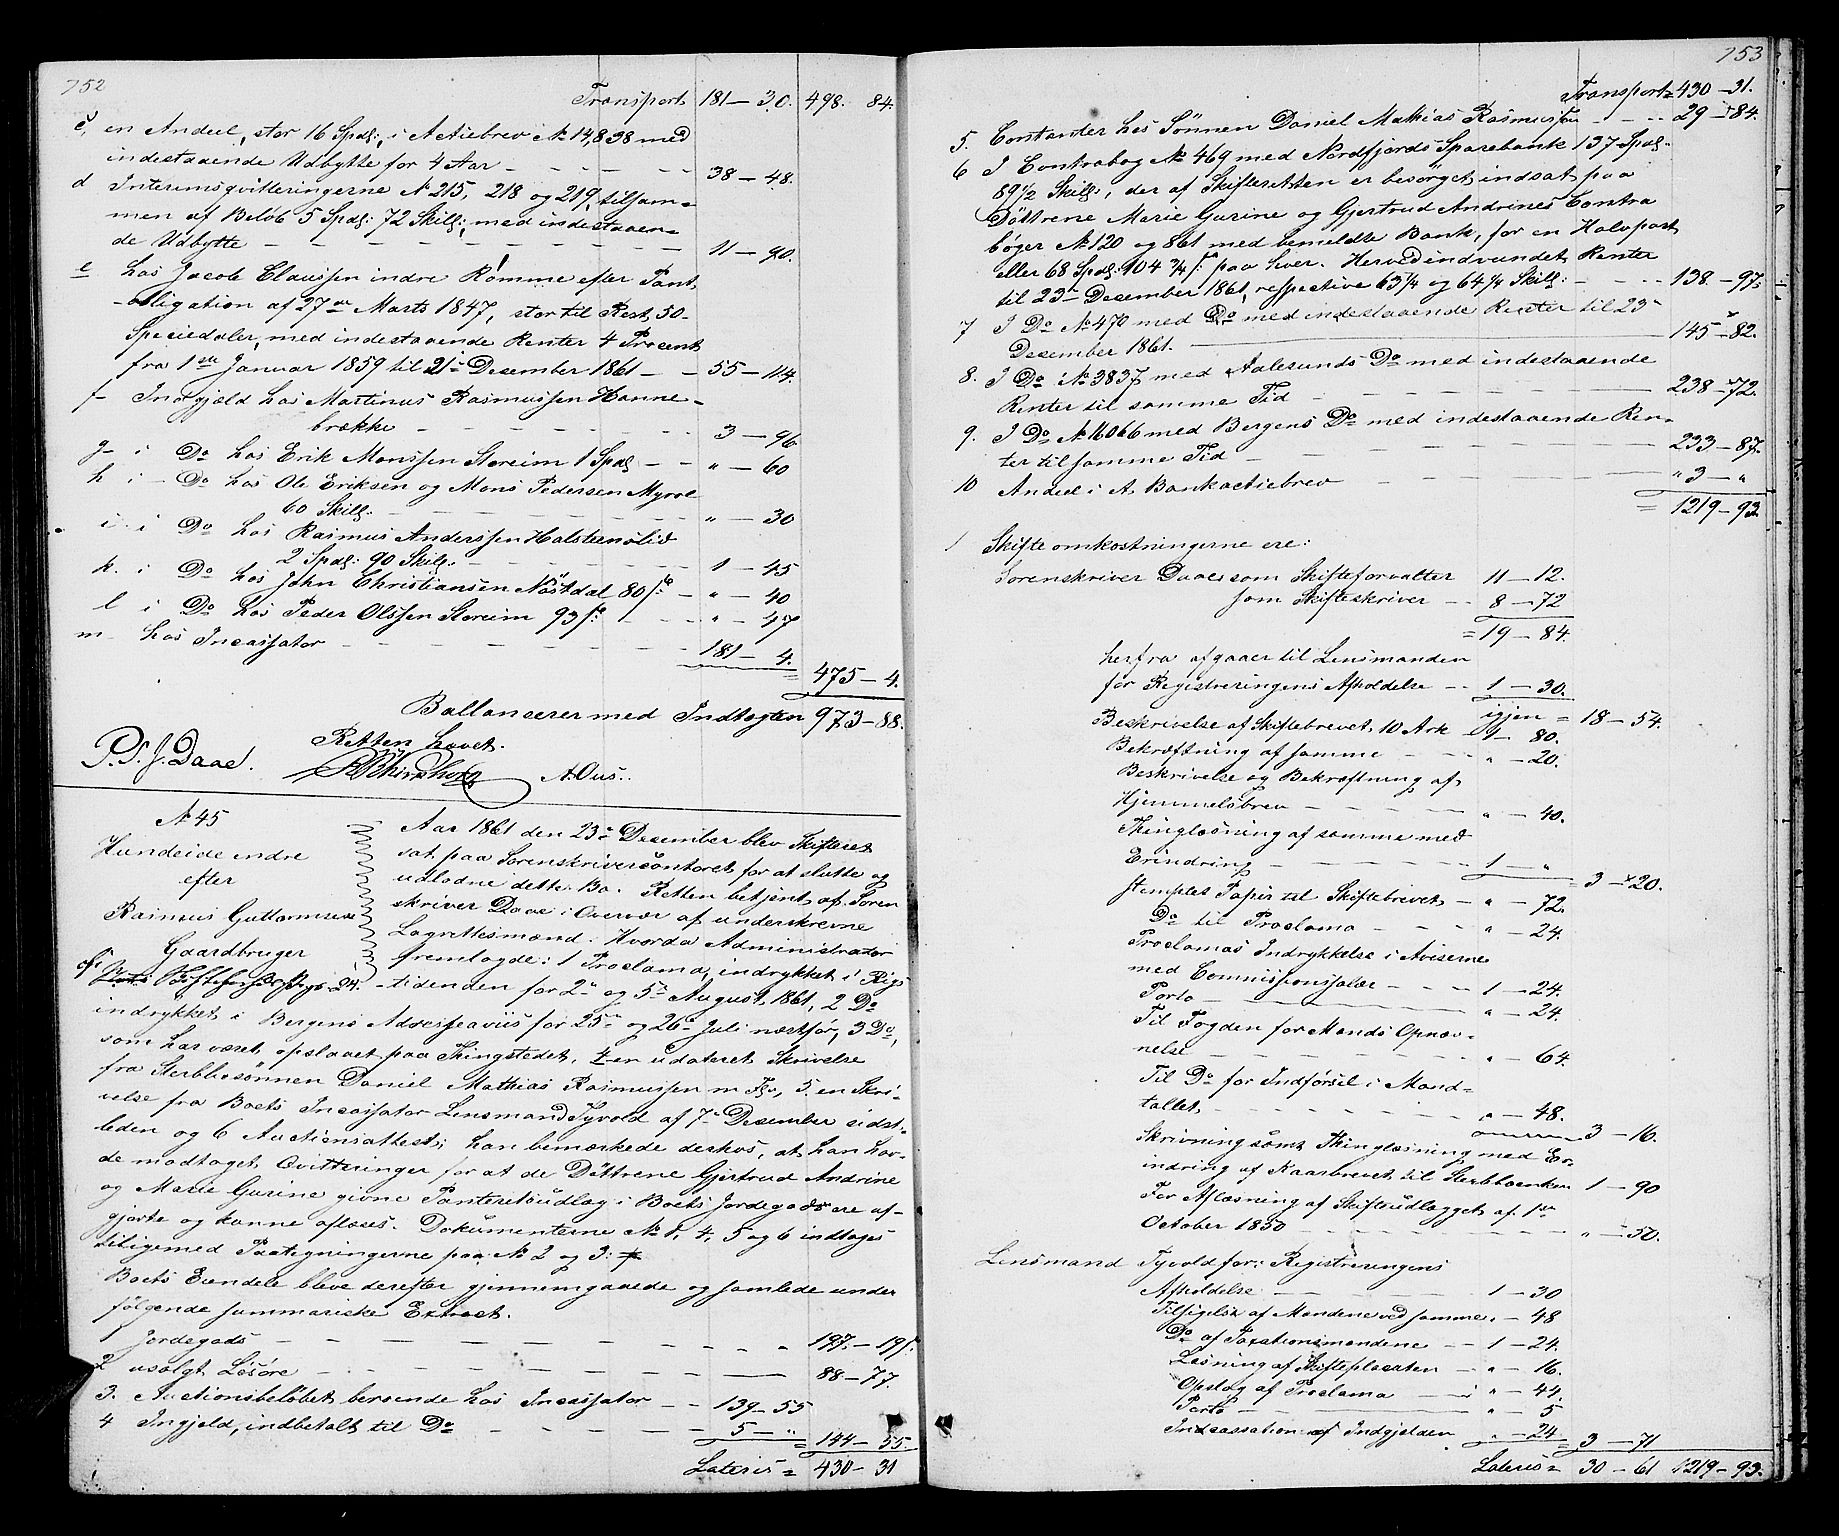 752
Transport 181 — 30. 498. 84.
c, en Andeel, stor 16 Spdl:, i Actiebrev № 14,838 med
indestaaende Udbytte for 4 Aar — — — — 38 — 48.
d Interimsqvitteringerne № 215, 218 og 219, tilsam=
men af Beløb 5 Spdl: 72 Skill:, med indestaaen=
de Udbytte — — — — — — — 11 — 90.
e hos Jacob Claussen indre Rømme efter Pant
obligation af 27de Marts 1847, stor til Rest, 50
Speciedaler, med indestaaende Renter 4 Procent
fra 1ste Januar 1859 til 21 December 1861 — — 55 — 114.
f Indgjæld hos Martinus Rasmussen Honne=
brække — — — — — 3 — 96.
g i Do hos Erik Monssen Storeim 1 Spdl — — " — 60
h i Do hos Ole Eriksen og Mons Pedersen Myrvol
60 Skill: — — — — — " — 30
i i Do hos Rasmus Anderssen Halsteenslid
2 Spdl: 90 Skill. — — — — — 1 — 45
k. i Do hos John Christiansen Nøstdal 80 s — " — 40
l i Do hos Peder Olssen Storeim 93 s — — " — 47
m hos Incassator — — — — — 181 — 4.
475 — 4.
Ballancerer med Indtægten 973 — 88.
Retten hævet.
P. J. Daae. A. Ous.
№ 45
Hundeide indre
efter
Rasmus Guttormsen
Gaardbruger
Aar 1861 den 23 December blev Skifteret
sat paa Sorenskrivercontoret for at slutte og
udlodne dette Bo. Retten betjent af Soren
skriver Daae i Overvær af underskrevne
Lagrettesmænd. Hvorda Administrator
fremlagde: 1 Proclama, indrykket i Rigs
tidenden for 2 og 5 August 1861, 2 Do
indrykket i Bergens Adresseaviis for 25 og 26 Juli næstfør, 3 Do,
som har været opslaaet paa Thingstedet, 4 en udateret Skrivelse
fra Sterbbosønnen Daniel Mathias Rasmussen m Flr, 5. en Skri=
velse fra Boets Incassator Lensmand Tyvold af 7 December sidst=
leden og 6 Auctionsattest; han bemærkede derhos, at han hav=
de modtaget Qvitteringer for at de Døttrene Gjertrud Andrine
og Marie Gurine givne Panteretsudlæg i Boets Jordegods ere af=
gjorte og kunne aflæses. Dokumenterne № 1, 4, 5 og 6 indtages
tilligemed Paategningerne paa № 2 og 3:
Boets Eiendele bleve derefter gjennemgaaede og samlede under
følgende summariske Extract.
1 Jordegods — — — — — — 197. — 19
2 usolgt Løsøre — — — — — — 88 — 77.
3. Auctionsbeløbet beroende hos Incassator — — 139 — 55
4 Ingjeld, indbetalt til Do — — — — 5 — " = 144 — 55.
Lateris = 430 — 31
753
Transport = 430 — 31.
5. Contanter hos Sønnen Daniel Mathias Rasmussen — — 29 — 84.
6 I Contrabog № 469 med Nordfjords Sparebank 137 Spdl.
89 1/2 Skill:, der af Skifteretten er besørget indsat paa
Døttrene Marie Gurine og Gjertrud Andrines Contra
bøger № 120 og 861 med bemeldte Bank, for en Halvpart
eller 68 Spdl: 104 3/4 s paa hver. Herved indvundet Renter
til 23 December 1861, respective 63 1/4 og 64 1/4 Skill: — — 138 — 97.
7 I Do № 470 med Do med indestaaende Renter til 23
December 1861. — 145 — 82.
8. I Do № 3837 med Aalesunds Do med indestaaende
Renter til samme Tid — — — — — 238 — 72.
9. I Do № 16066 med Bergens Do med indestaaende Ren=
ter til samme Tid — — — — — 233 — 87.
10 Andeel i A. Bankactiebrev — — — — " 3 — "
= 1219 — 93.
1 Skifteomkostningerne ere:
Sorenskriver Daae som Skifteforvalter 11 — 12.
som Skifteskriver — — 8 — 72
= 19 — 84.
herfra afgaaer til Lensmanden
for Registreringens Afholdelse — — 1 — 30.
igjen = 18 — 54.
Beskrivelse af Skiftebrevet 10 Ark — 1 — 80.
Bekræftning af samme — — " — 20.
Beskrivelse og Bekræftning af
Hjemmelsbrev — — — — " — 40.
Thinglæsning af samme med
Erindring — — — — 1 — "
= 3 — 20.
stemplet Papir til Skiftebrevet — " — 72.
Do til Proclama — — — " — 24.
Proclamas Indrykkelse i Aviserne
med Commissionssalær — — — 1 — 24.
Porto — — — — " — 24.
Til Fogden for Mands Opnæv=
nelse — — — — " — 64.
Til Do for Indførsel i Mand=
tallet — — — — " — 48.
3 — 16.
Skrivning samt Thinglæsning med Er=
indring af Kaarbrevet til Sterbboenken 1 — 90
For Aflæsning af Skifteudlægget af 1ste
October 1850 — — — — " — 50.
Lensmand Tyvold for: Registreringens
Afholdelse — — — 1 — 30
Tilsigelse af Mændene ved samme. — 48
Do af Taxationsmændene — — 1 — 24.
Læsning af Skifteplacaten — " — 16.
Opslag af Proclama — — " — 44.
Porto — — — " — 5
Incassation af Indgjelden " — 24
= 3 — 71
Lateris = 30 — 61 1219 — 93.